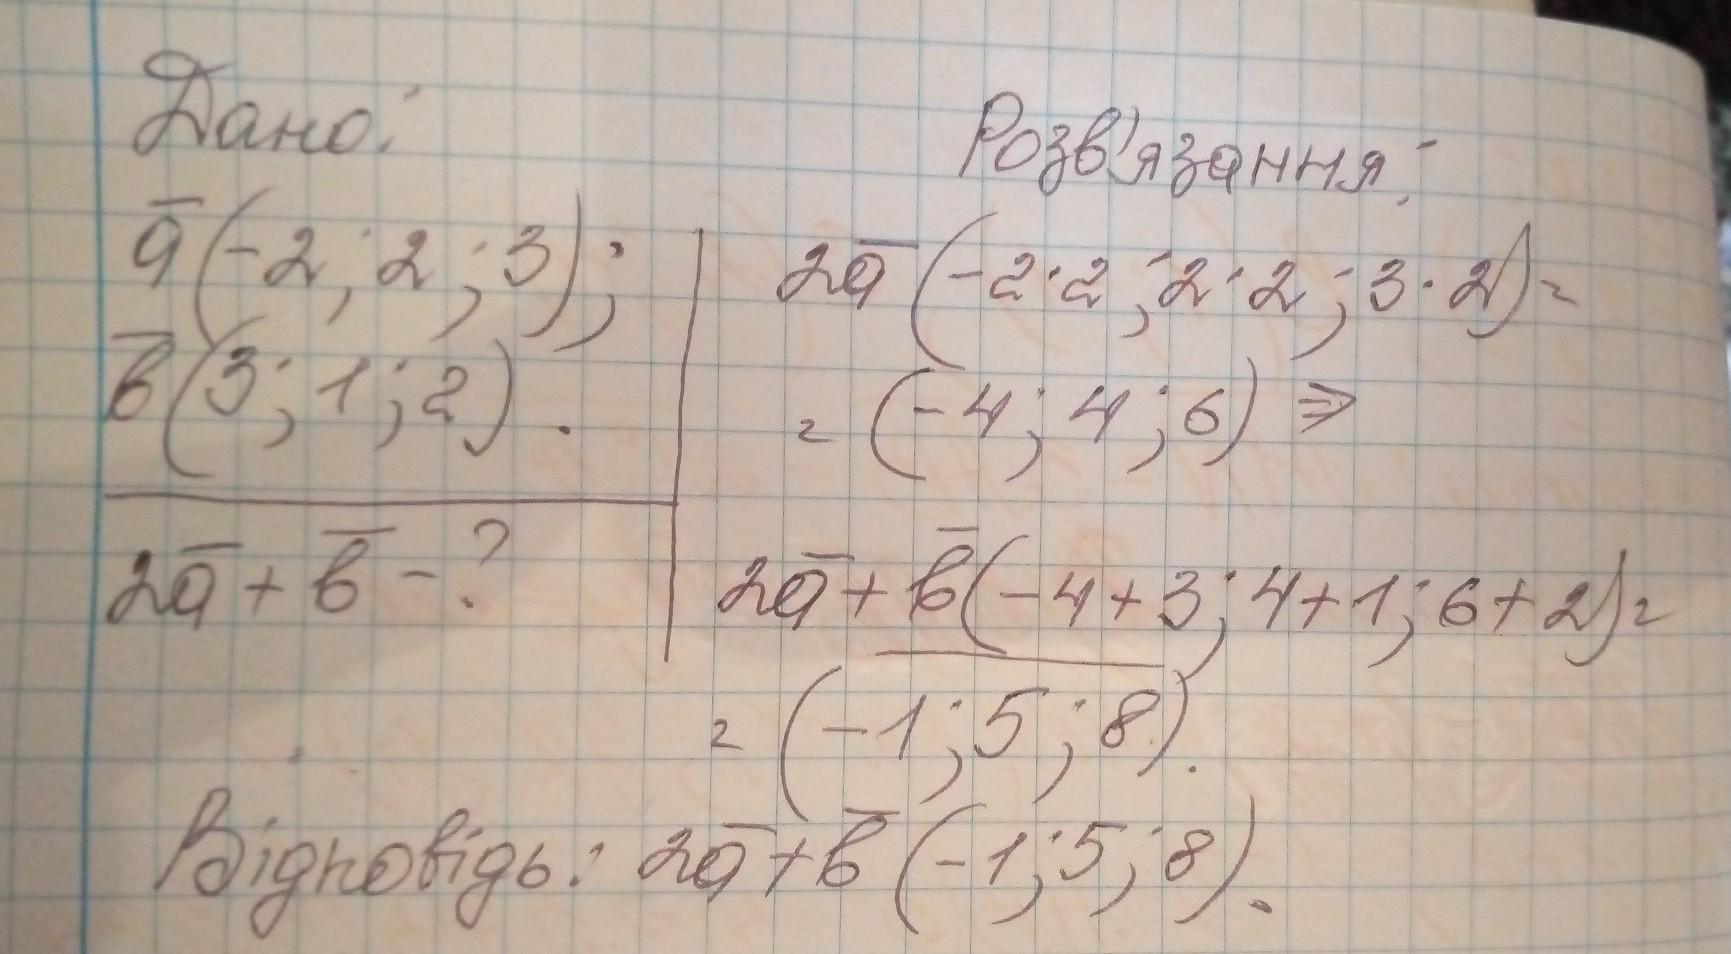 Дано:
a̅(-2; 2; 3);
b̅(3; 1; 2).
2a̅ + b̅ - ?
Розв'язання:
2a̅(-2·2; 2·2; 3·2)=
= (-4; 4; 6) ⇒
2a̅ + b̅(-4+3; 4+1; 6+2)=
= (-1; 5; 8).
Відповідь: 2a̅+b̅(-1; 5; 8).